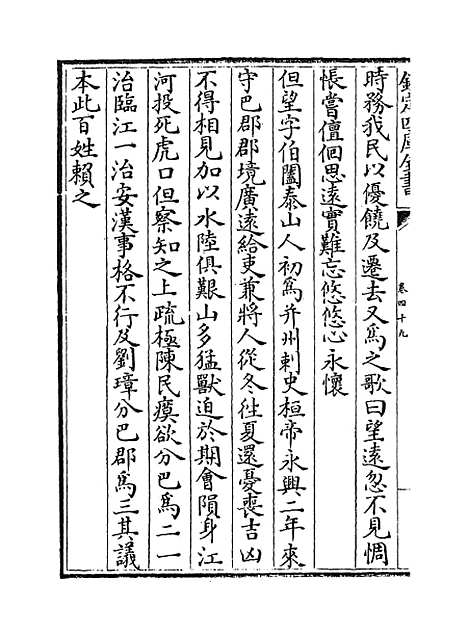 欽定四庫全書
卷四十九
時務我民以優饒及遷去又為之歌曰望遠忽不見惆
悵嘗儃佪思遠實難忘悠悠心永懷
但望字伯闔泰山人初為并州刺史桓帝永興二年來
守巴郡郡境廣遠給吏兼將人從冬徃夏還憂喪吉凶
不得相見加以水陸俱艱山多猛獸迫於期會隕身江
河投死虎口但察知之上疏極陳民瘼欲分巴為二一
治臨江一治安漢事格不行及劉璋分巴郡為三其議
本此百姓賴之